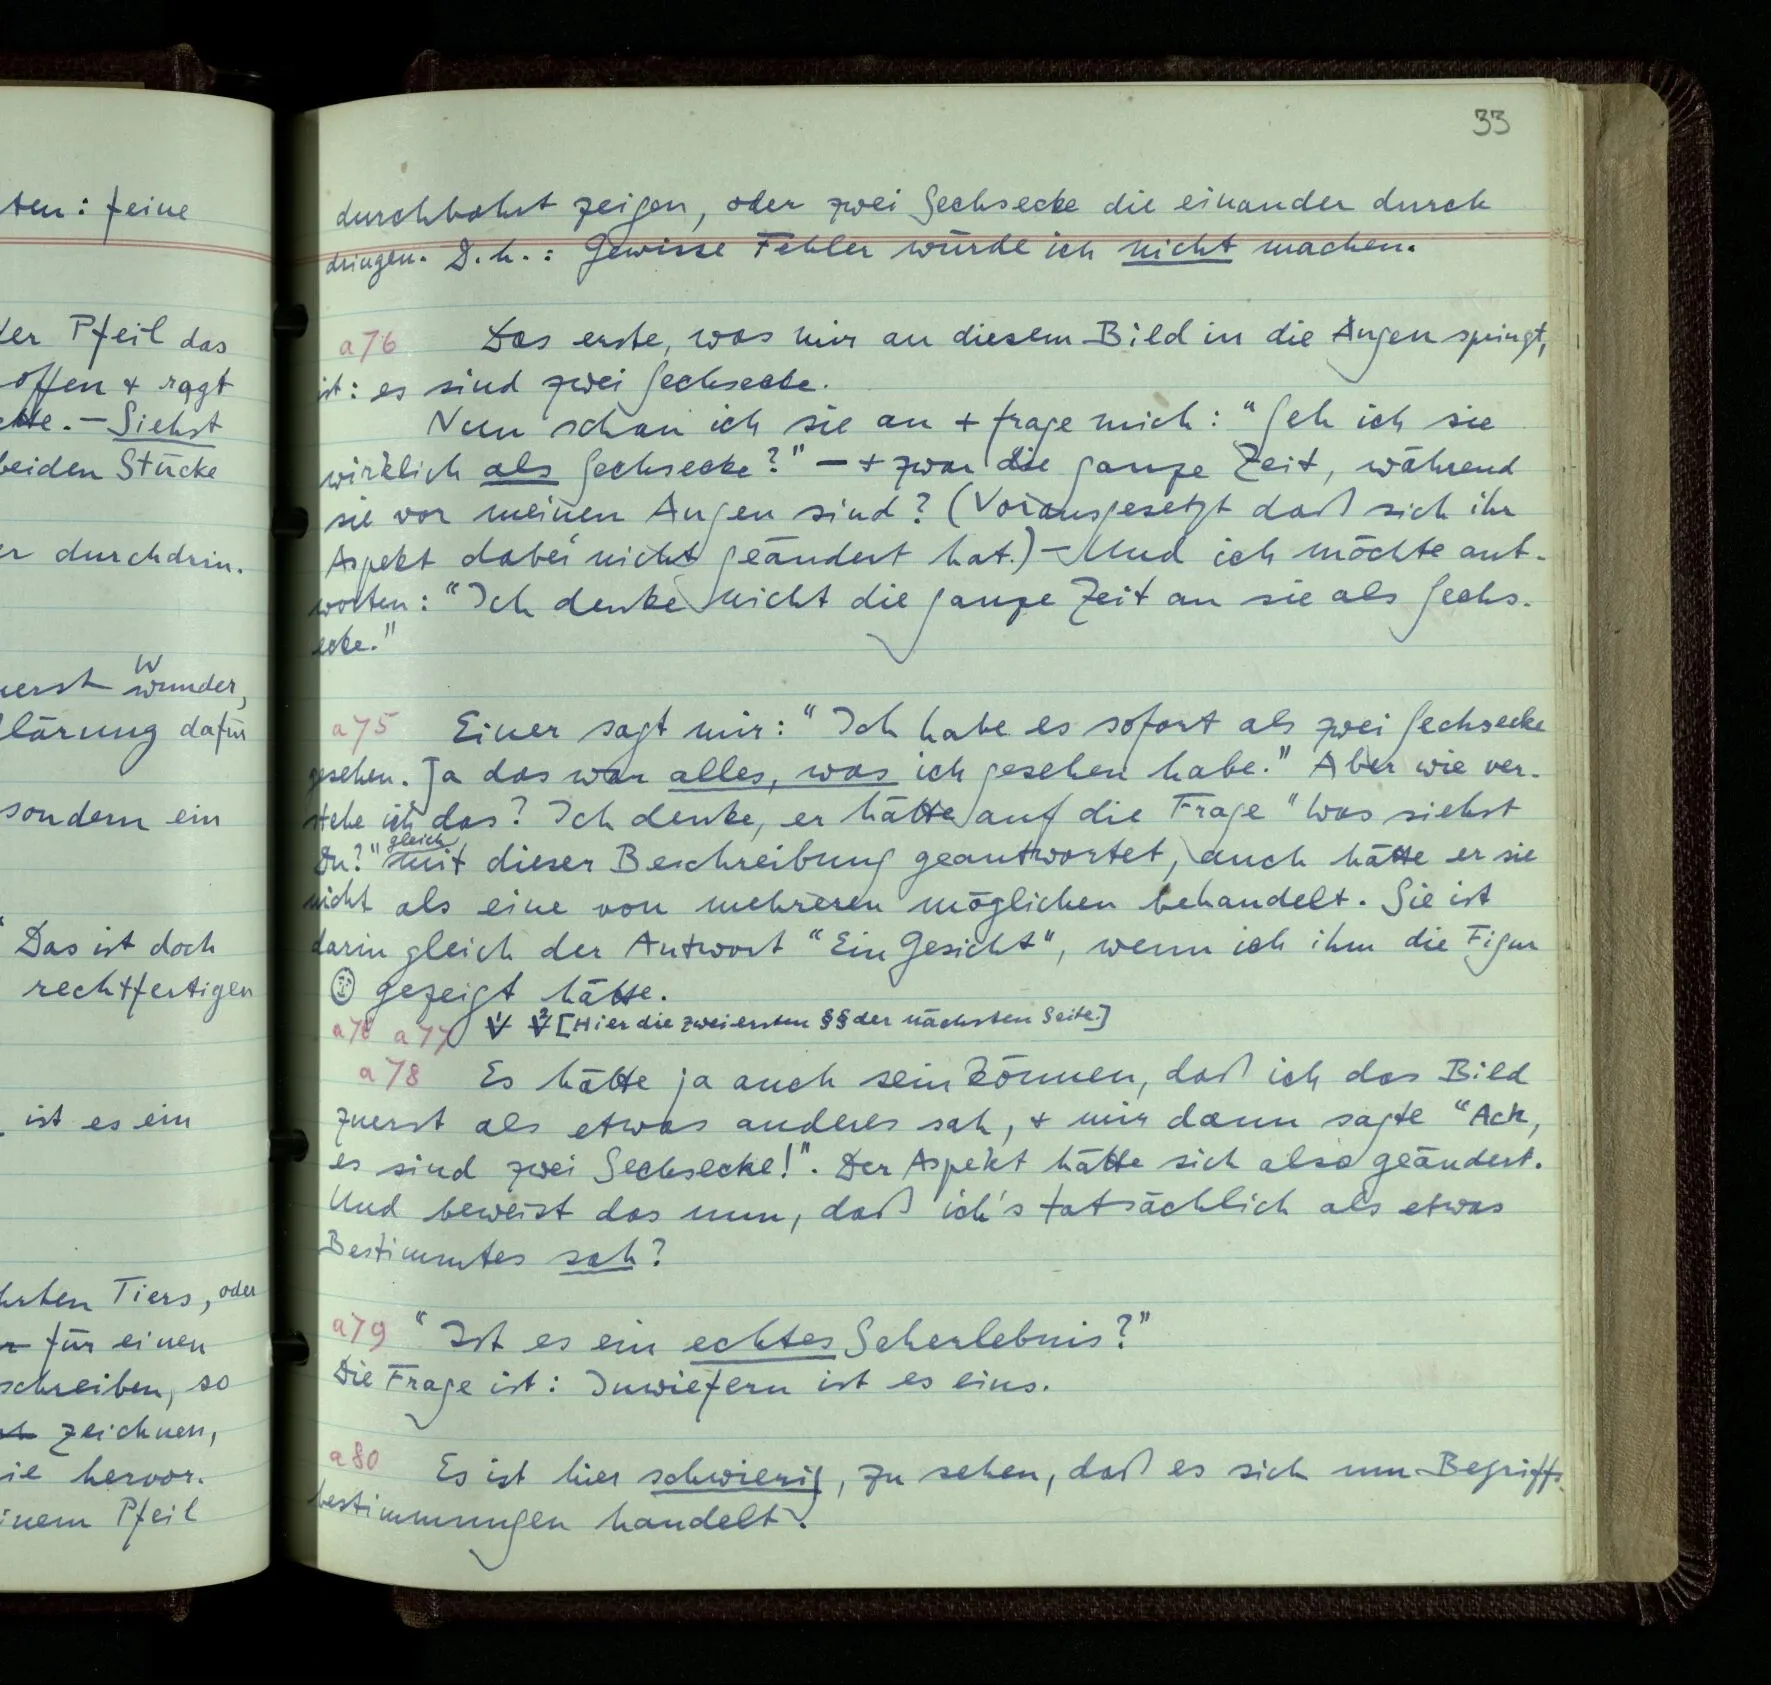 ten: feine
der Pfeil das
offen + ragt
Siehst
beiden Stücke
er durchdrin-
uerst wunder,
W
klärung dafür
sondern ein
" Das ist doch
rechtfertigen
ist es ein
hrten Tiers, oder
für einen
schreiben, so
zeichnen,
sie hervor.
inem Pfeil
33
durchbohrt zeigen, oder zwei Sechsecke die einander durch
dringen. D.h.: Gewisse Fehler würde ich nicht machen.
a76 Das erste, was mir an diesem Bild in die Augen springt,
ist: es sind zwei Sechsecke.
Nun schau ich sie an + frage mich: "Seh ich sie
wirklich als Sechsecke?" — + zwar die ganze Zeit, während
sie vor meinen Augen sind? (Vorausgesetzt daß sich ihr
Aspekt dabei nicht geändert hat.) — Und ich möchte ant-
worten: "Ich denke nicht die ganze Zeit an sie als Sechs-
ecke."
a75 Einer sagt mir: "Ich habe es sofort als zwei Sechsecke
gesehen. Ja das war alles, was ich gesehen habe." Aber wie ver-
stehe ich das? Ich denke, er hätte auf die Frage "Was siehst
Du?" gleich mit dieser Beschreibung geantwortet, auch hätte er sie
nicht als eine von mehreren möglichen behandelt. Sie ist
darin gleich der Antwort "Ein Gesicht", wenn ich ihm die Figur
gezeigt hätte.
a76 a77 [Hier die zwei ersten §§ der nächsten Seite.]
a78 Es hätte ja auch sein können, daß ich das Bild
zuerst als etwas anderes sah, + mir dann sagte "Ach,
es sind zwei Sechsecke!". Der Aspekt hätte sich also geändert.
Und beweist das nun, daß ich's tatsächlich als etwas
Bestimmtes sah?
a79 "Ist es ein echtes Seherlebnis?"
Die Frage ist: Inwiefern ist es eins.
a80 Es ist hier schwierig, zu sehen, daß es sich um Begriffs-
bestimmungen handelt.